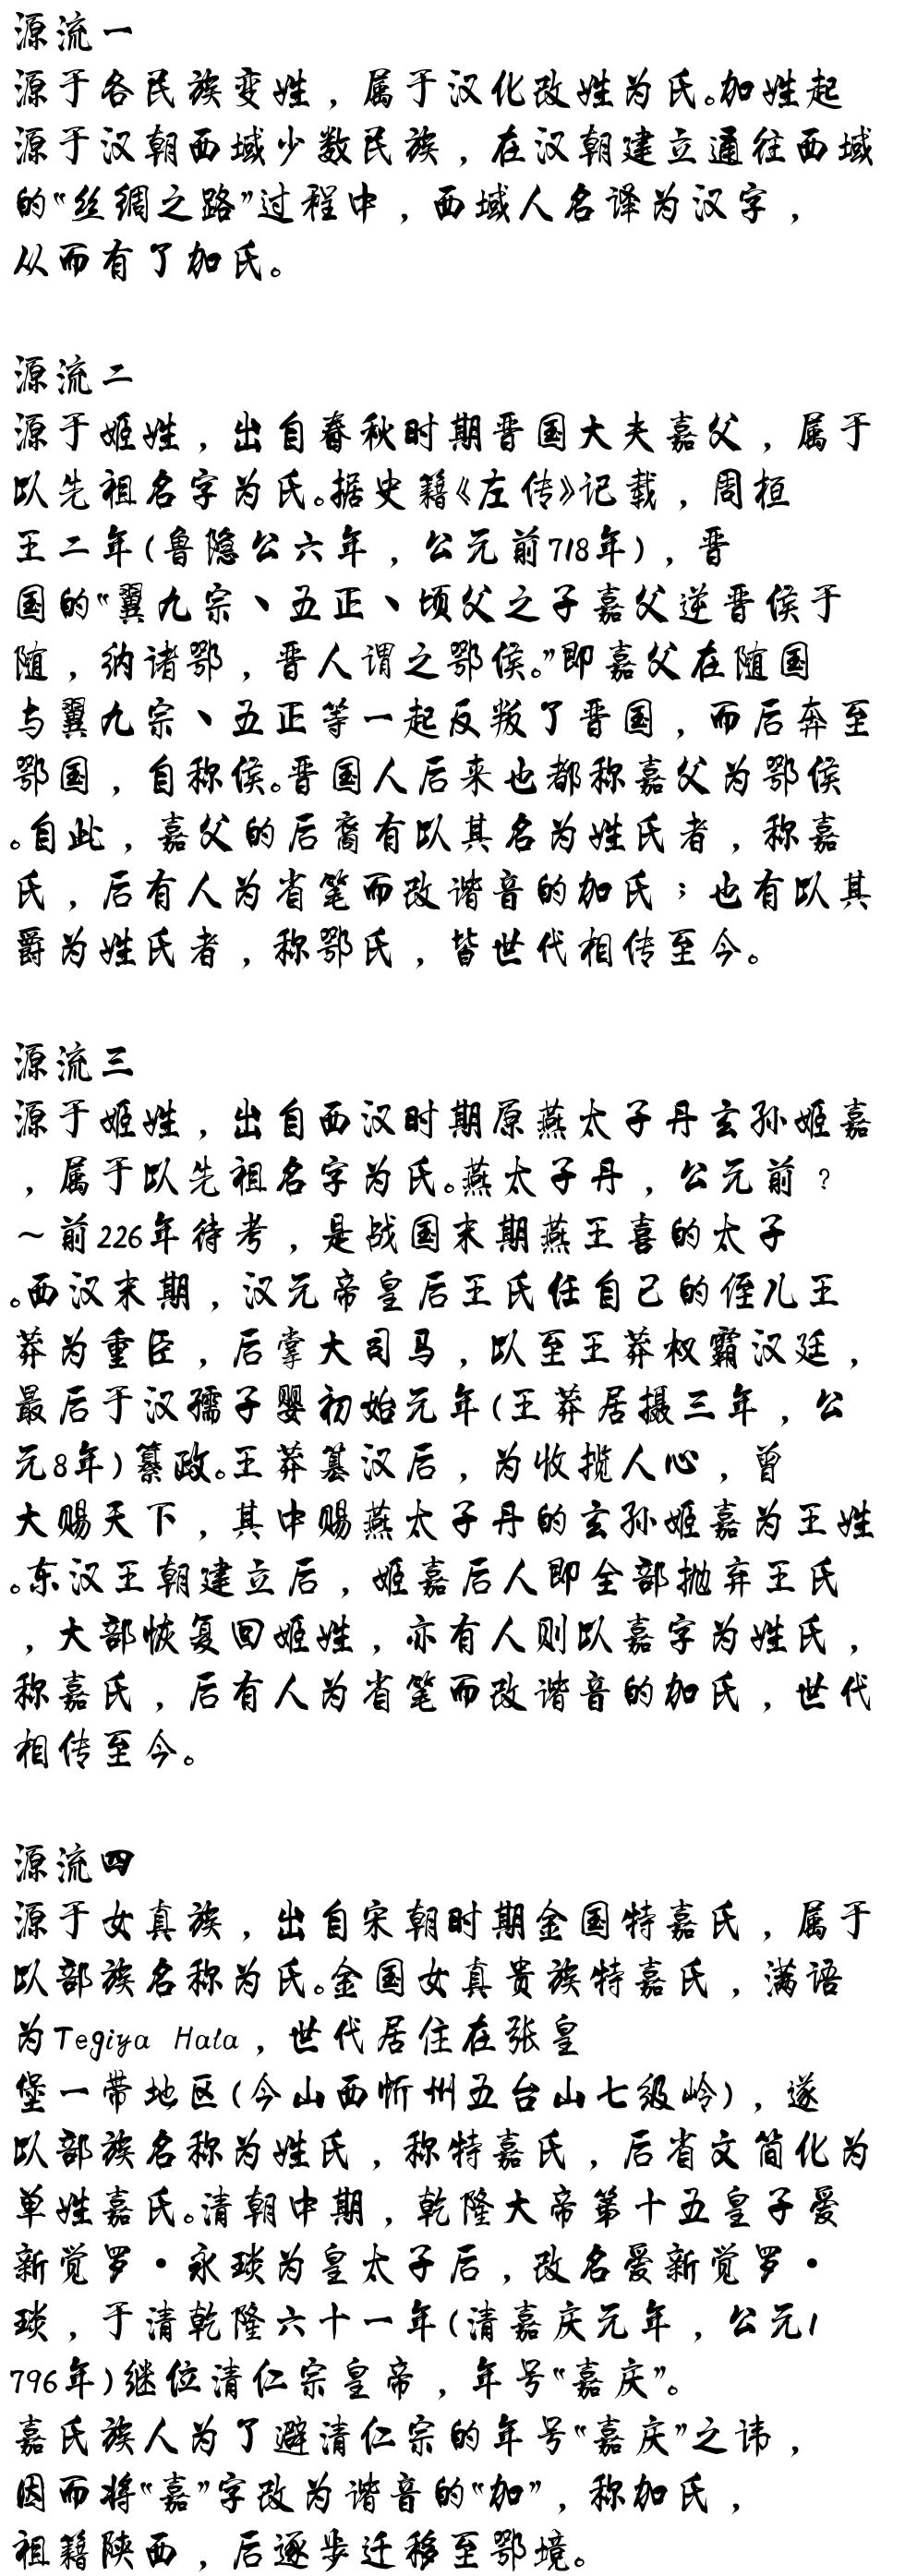 源流一
源于各民族变姓，属于汉化改姓为氏。加姓起
源于汉朝西域少数民族，在汉朝建立通往西域
的“丝绸之路”过程中，西域人名译为汉字，
从而有了加氏。
源流二
源于姬姓，出自春秋时期晋国大夫嘉父，属于
以先祖名字为氏。据史籍《左传》记载，周桓
王二年(鲁隐公六年，公元前718年)，晋
国的“翼九宗、五正、顷父之子嘉父逆晋侯于
随，纳诸鄂，晋人谓之鄂侯。”即嘉父在随国
与翼九宗、五正等一起反叛了晋国，而后奔至
鄂国，自称侯。晋国人后来也都称嘉父为鄂侯
。自此，嘉父的后裔有以其名为姓氏者，称嘉
氏，后有人为省笔而改谐音的加氏；也有以其
爵为姓氏者，称鄂氏，皆世代相传至今。
源流三
源于姬姓，出自西汉时期原燕太子丹玄孙姬嘉
，属于以先祖名字为氏。燕太子丹，公元前？
～前226年待考，是战国末期燕王喜的太子
。西汉末期，汉元帝皇后王氏任自己的侄儿王
莽为重臣，后掌大司马，以至王莽权霸汉廷，
最后于汉孺子婴初始元年(王莽居摄三年，公
元8年)纂政。王莽篡汉后，为收揽人心，曾
大赐天下，其中赐燕太子丹的玄孙姬嘉为王姓
。东汉王朝建立后，姬嘉后人即全部抛弃王氏
，大部恢复回姬姓，亦有人则以嘉字为姓氏，
称嘉氏，后有人为省笔而改谐音的加氏，世代
相传至今。
源流四
源于女真族，出自宋朝时期金国特嘉氏，属于
以部族名称为氏。金国女真贵族特嘉氏，满语
为Tegiya Hala，世代居住在张皇
堡一带地区(今山西忻州五台山七级岭)，遂
以部族名称为姓氏，称特嘉氏，后省文简化为
单姓嘉氏。清朝中期，乾隆大帝第十五皇子爱
新觉罗·永琰为皇太子后，改名爱新觉罗·
琰，于清乾隆六十一年(清嘉庆元年，公元1
796年)继位清仁宗皇帝，年号“嘉庆”。
嘉氏族人为了避清仁宗的年号“嘉庆”之讳，
因而将“嘉”字改为谐音的“加”，称加氏，
祖籍陕西，后逐步迁移至鄂境。